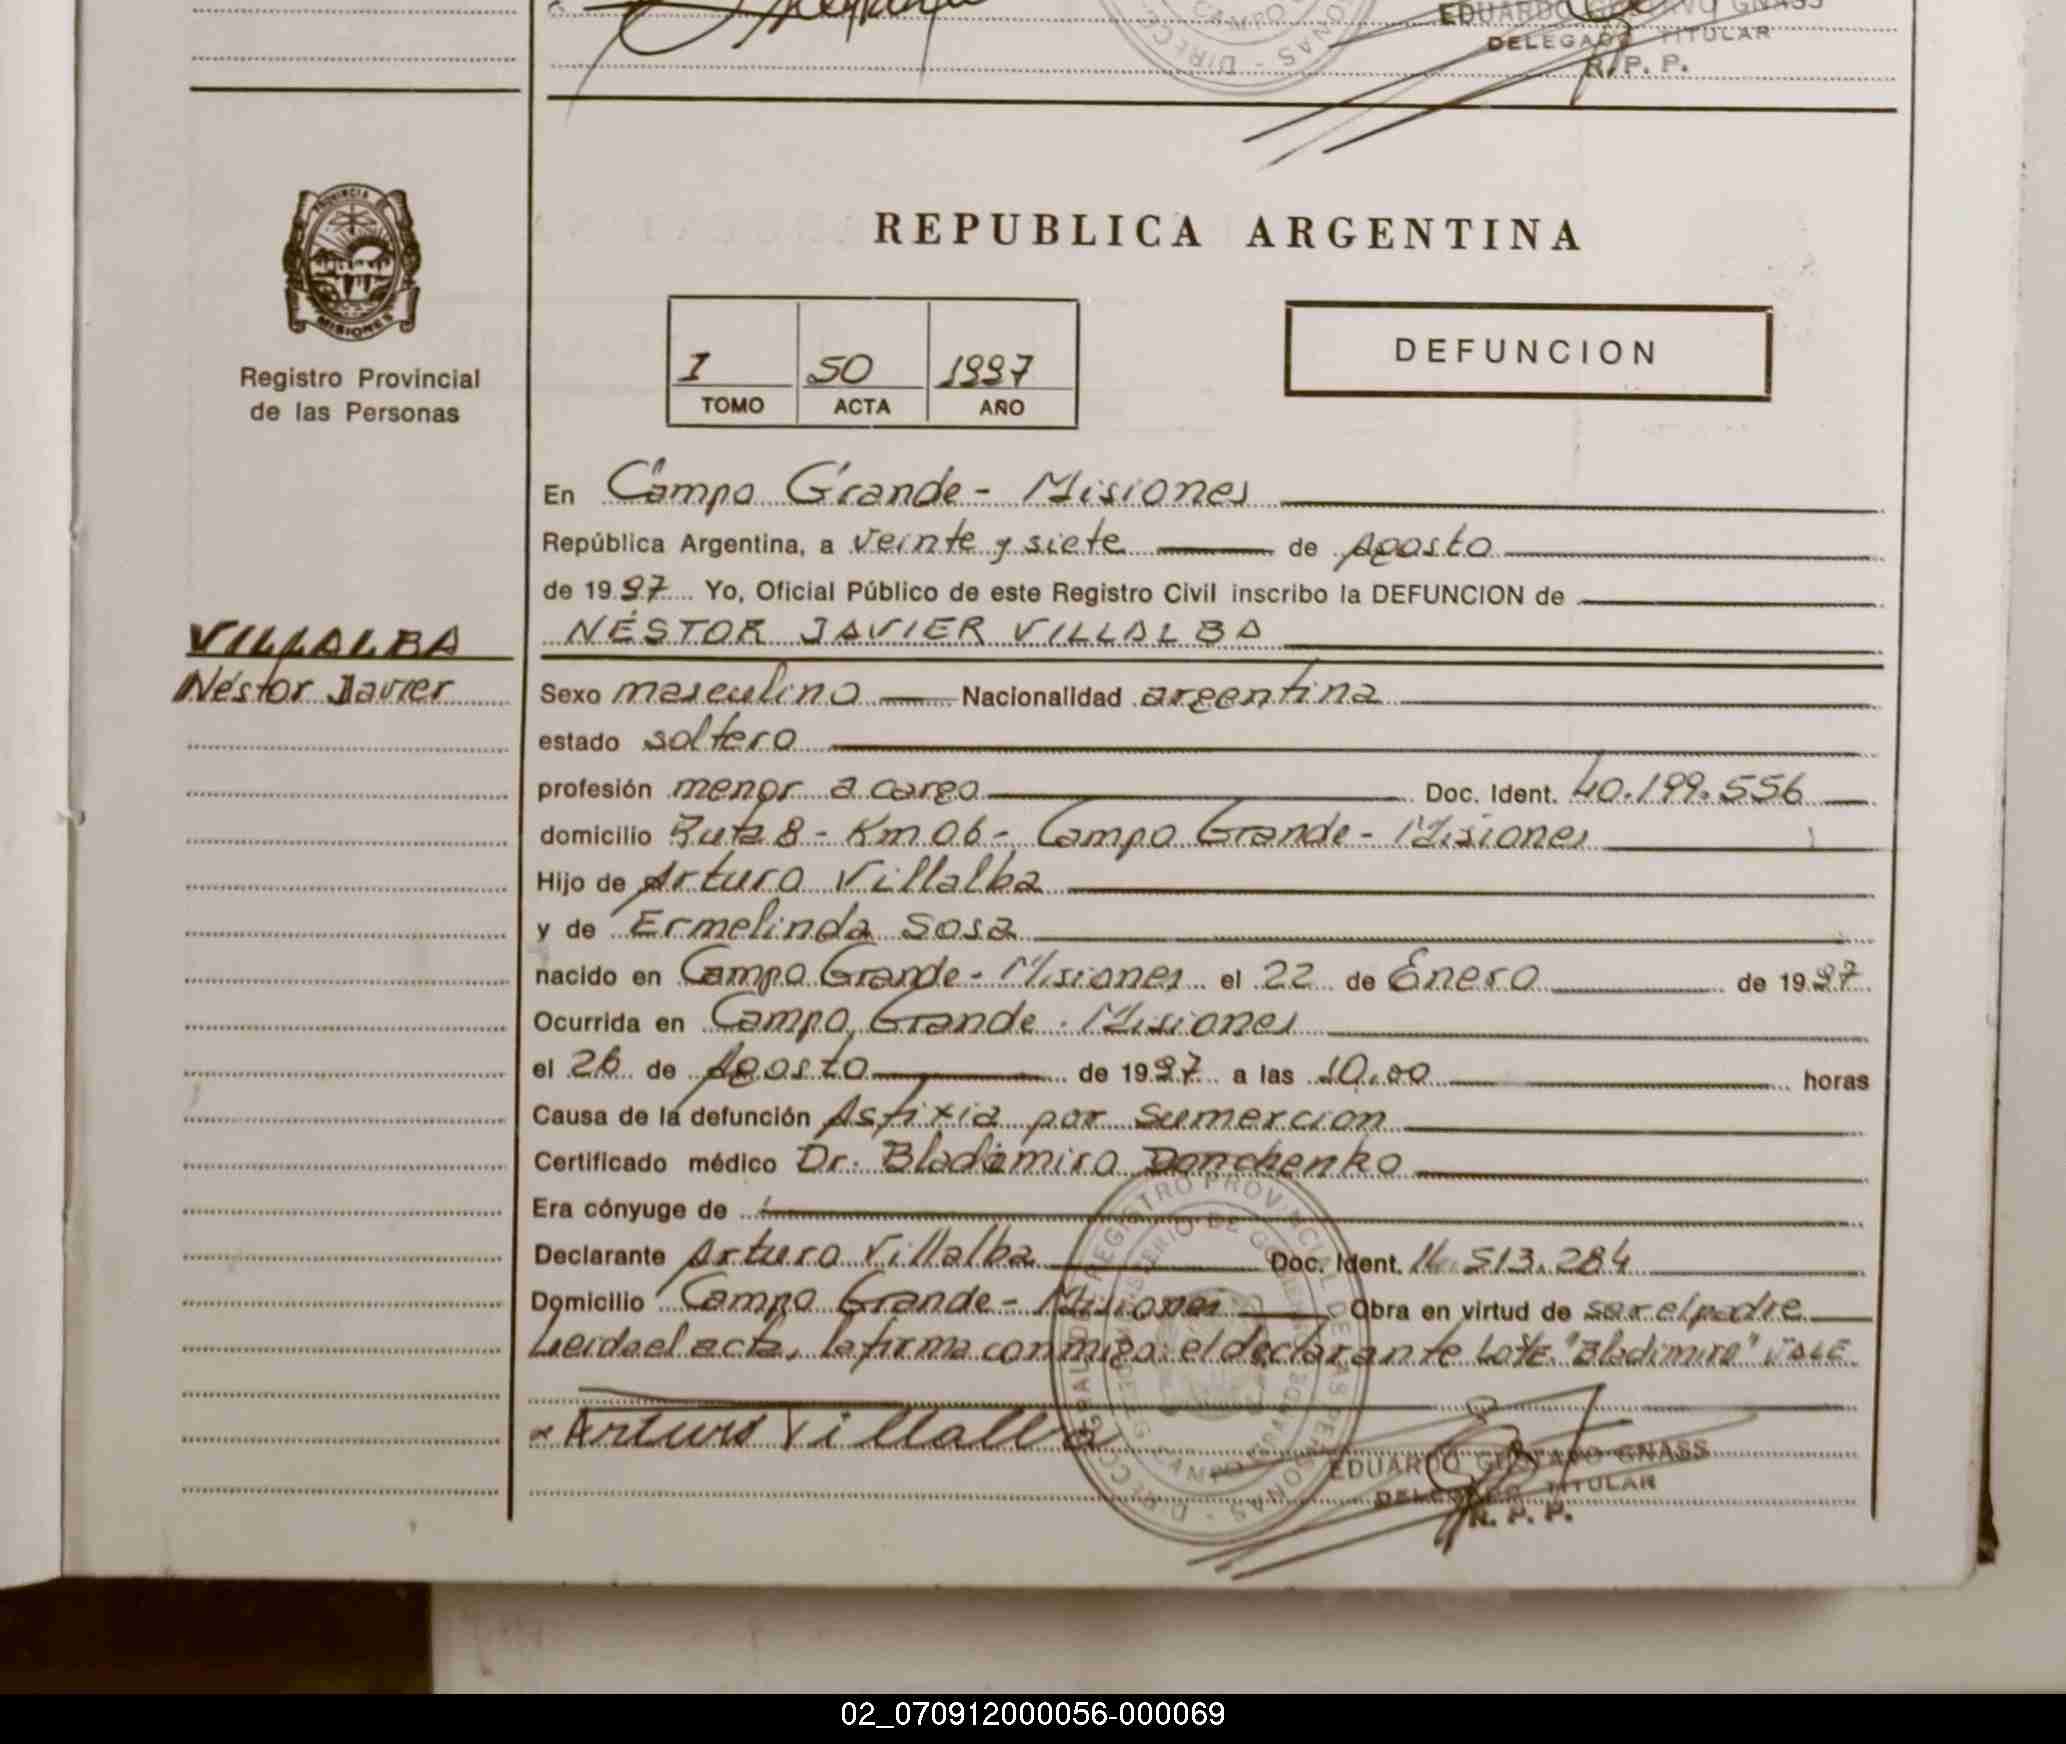 EDUARDO GUSTAVO GNASS
DELEGADO TITULAR
R. P. P.
PROVINCIA DE
MISIONES
Registro Provincial
de las Personas
REPUBLICA ARGENTINA
I 50 1997
TOMO ACTA AÑO
DEFUNCION
En Campo Grande - Misiones
República Argentina, a veinte y siete de Agosto
de 1997 Yo, Oficial Público de este Registro Civil inscribo la DEFUNCION de
VILLALBA
NÉSTOR JAVIER VILLALBA
Néstor Javier
Sexo masculino Nacionalidad argentina
estado soltero
profesión menor a cargo Doc. Ident. 40.199.556
domicilio Ruta 8 - Km 06 - Campo Grande - Misiones
Hijo de Arturo Villalba
y de Ermelinda Sosa
nacido en Campo Grande - Misiones el 22 de Enero de 1997
Ocurrida en Campo Grande - Misiones
el 26 de Agosto de 1997 a las 10,00 horas
Causa de la defunción Asfixia por sumercion
Certificado médico Dr. Bladimiro Donchenko
Era cónyuge de
Declarante Arturo Villalba Doc. Ident. 513.284
Domicilio Campo Grande - Misiones Obra en virtud de ser el padre
Leida el acta, la firma conmigo el declarante "Bladimiro" VALE
Arturo Villalba
EDUARDO GUSTAVO GNASS
DELEGADO TITULAR
R. P. P.
02_070912000056-000069